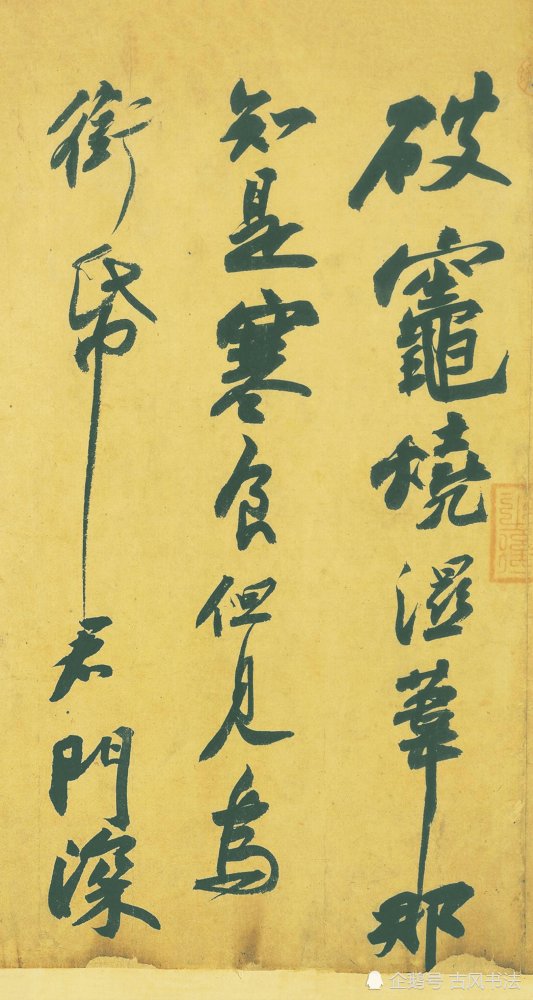 破竈燒溼葦那
知是寒食但見烏
銜帋君門深
企鹅号 古风书法